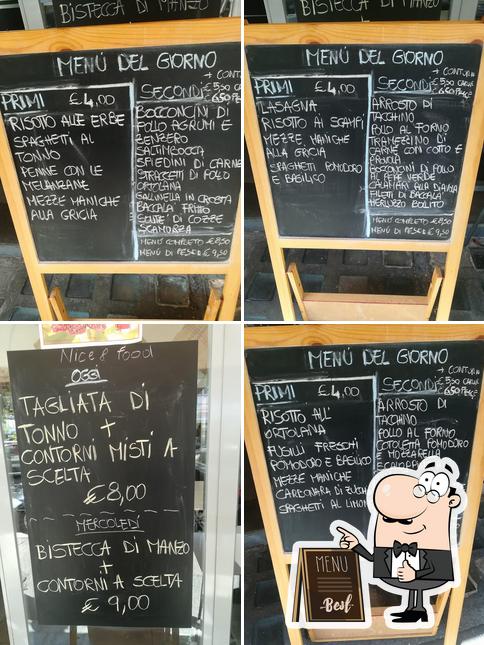 BISTECCA DI MANZO
MENÙ DEL GIORNO
+ CONTORNO
PRIMI £ 4,00
SECONDI
€ 5,50 CARNE
€ 6,50 PESCE
RISOTTO ALLE ERBE
SPAGHETTI AL
TONNO
PENNE CON LE
MELANZANE
MEZZE MANICHE
ALLA GRICIA
BOCCONCINI DI
POLLO AGRUMI E
ZENZERO
SALTIMBOCCA
SPIEDINI DI CARNE
STRACCETTI DI POLLO
ORTOLANA
GALLINELLA IN CROSTA
BACCALÀ FRITTO
SOUTÈ DI COZZE
SCAMORZA
MENÙ COMPLETO € 8,50
MENÙ DI PESCE € 9,50
BISTECCA DI MANZO
MENÙ DEL GIORNO
+ CONTORNO
PRIMI £ 4,00
SECONDI
€ 5,50 CARNE
€ 6,50 PESCE
LASAGNA
RISOTTO AI SCAMPI
MEZZE MANICHE
ALLA GRICIA
SPAGHETTI POMODORO
E BASILICO
ARROSTO DI
TACCHINO
POLLO AL FORNO
TRAMEZZINO DI
CARNE CON COTTO E
BOCCONCINI DI POLLO
AL PEPE VERDE
CALAMARI ALLA DIAVOLA
FILETTI DI BACCALÀ
MERLUZZO BOLLITO
MENÙ COMPLETO € 8,50
MENÙ DI PESCE € 9,50
Nice & food
OGGI
TAGLIATA DI
TONNO +
CONTORNI MISTI A
SCELTA
€ 8,00
MERCOLEDÌ
BISTECCA DI MANZO
+
CONTORNI A SCELTA
€ 9,00
MENÙ DEL GIORNO
+ CONTORNO
PRIMI £ 4,00
SECONDI
€ 5,50 CARNE
€ 6,50 PESCE
RISOTTO ALL'
ORTOLANA
FUSILLI FRESCHI
POMODORO E BASILICO
MEZZE MANICHE
CARBONARA DI ZUCCHINE
SPAGHETTI AL LIMONE
ARROSTO DI
TACCHINO
POLLO AL FORNO
COTOLETTA POMODORO
E MOZZARELLA
MENU
Best